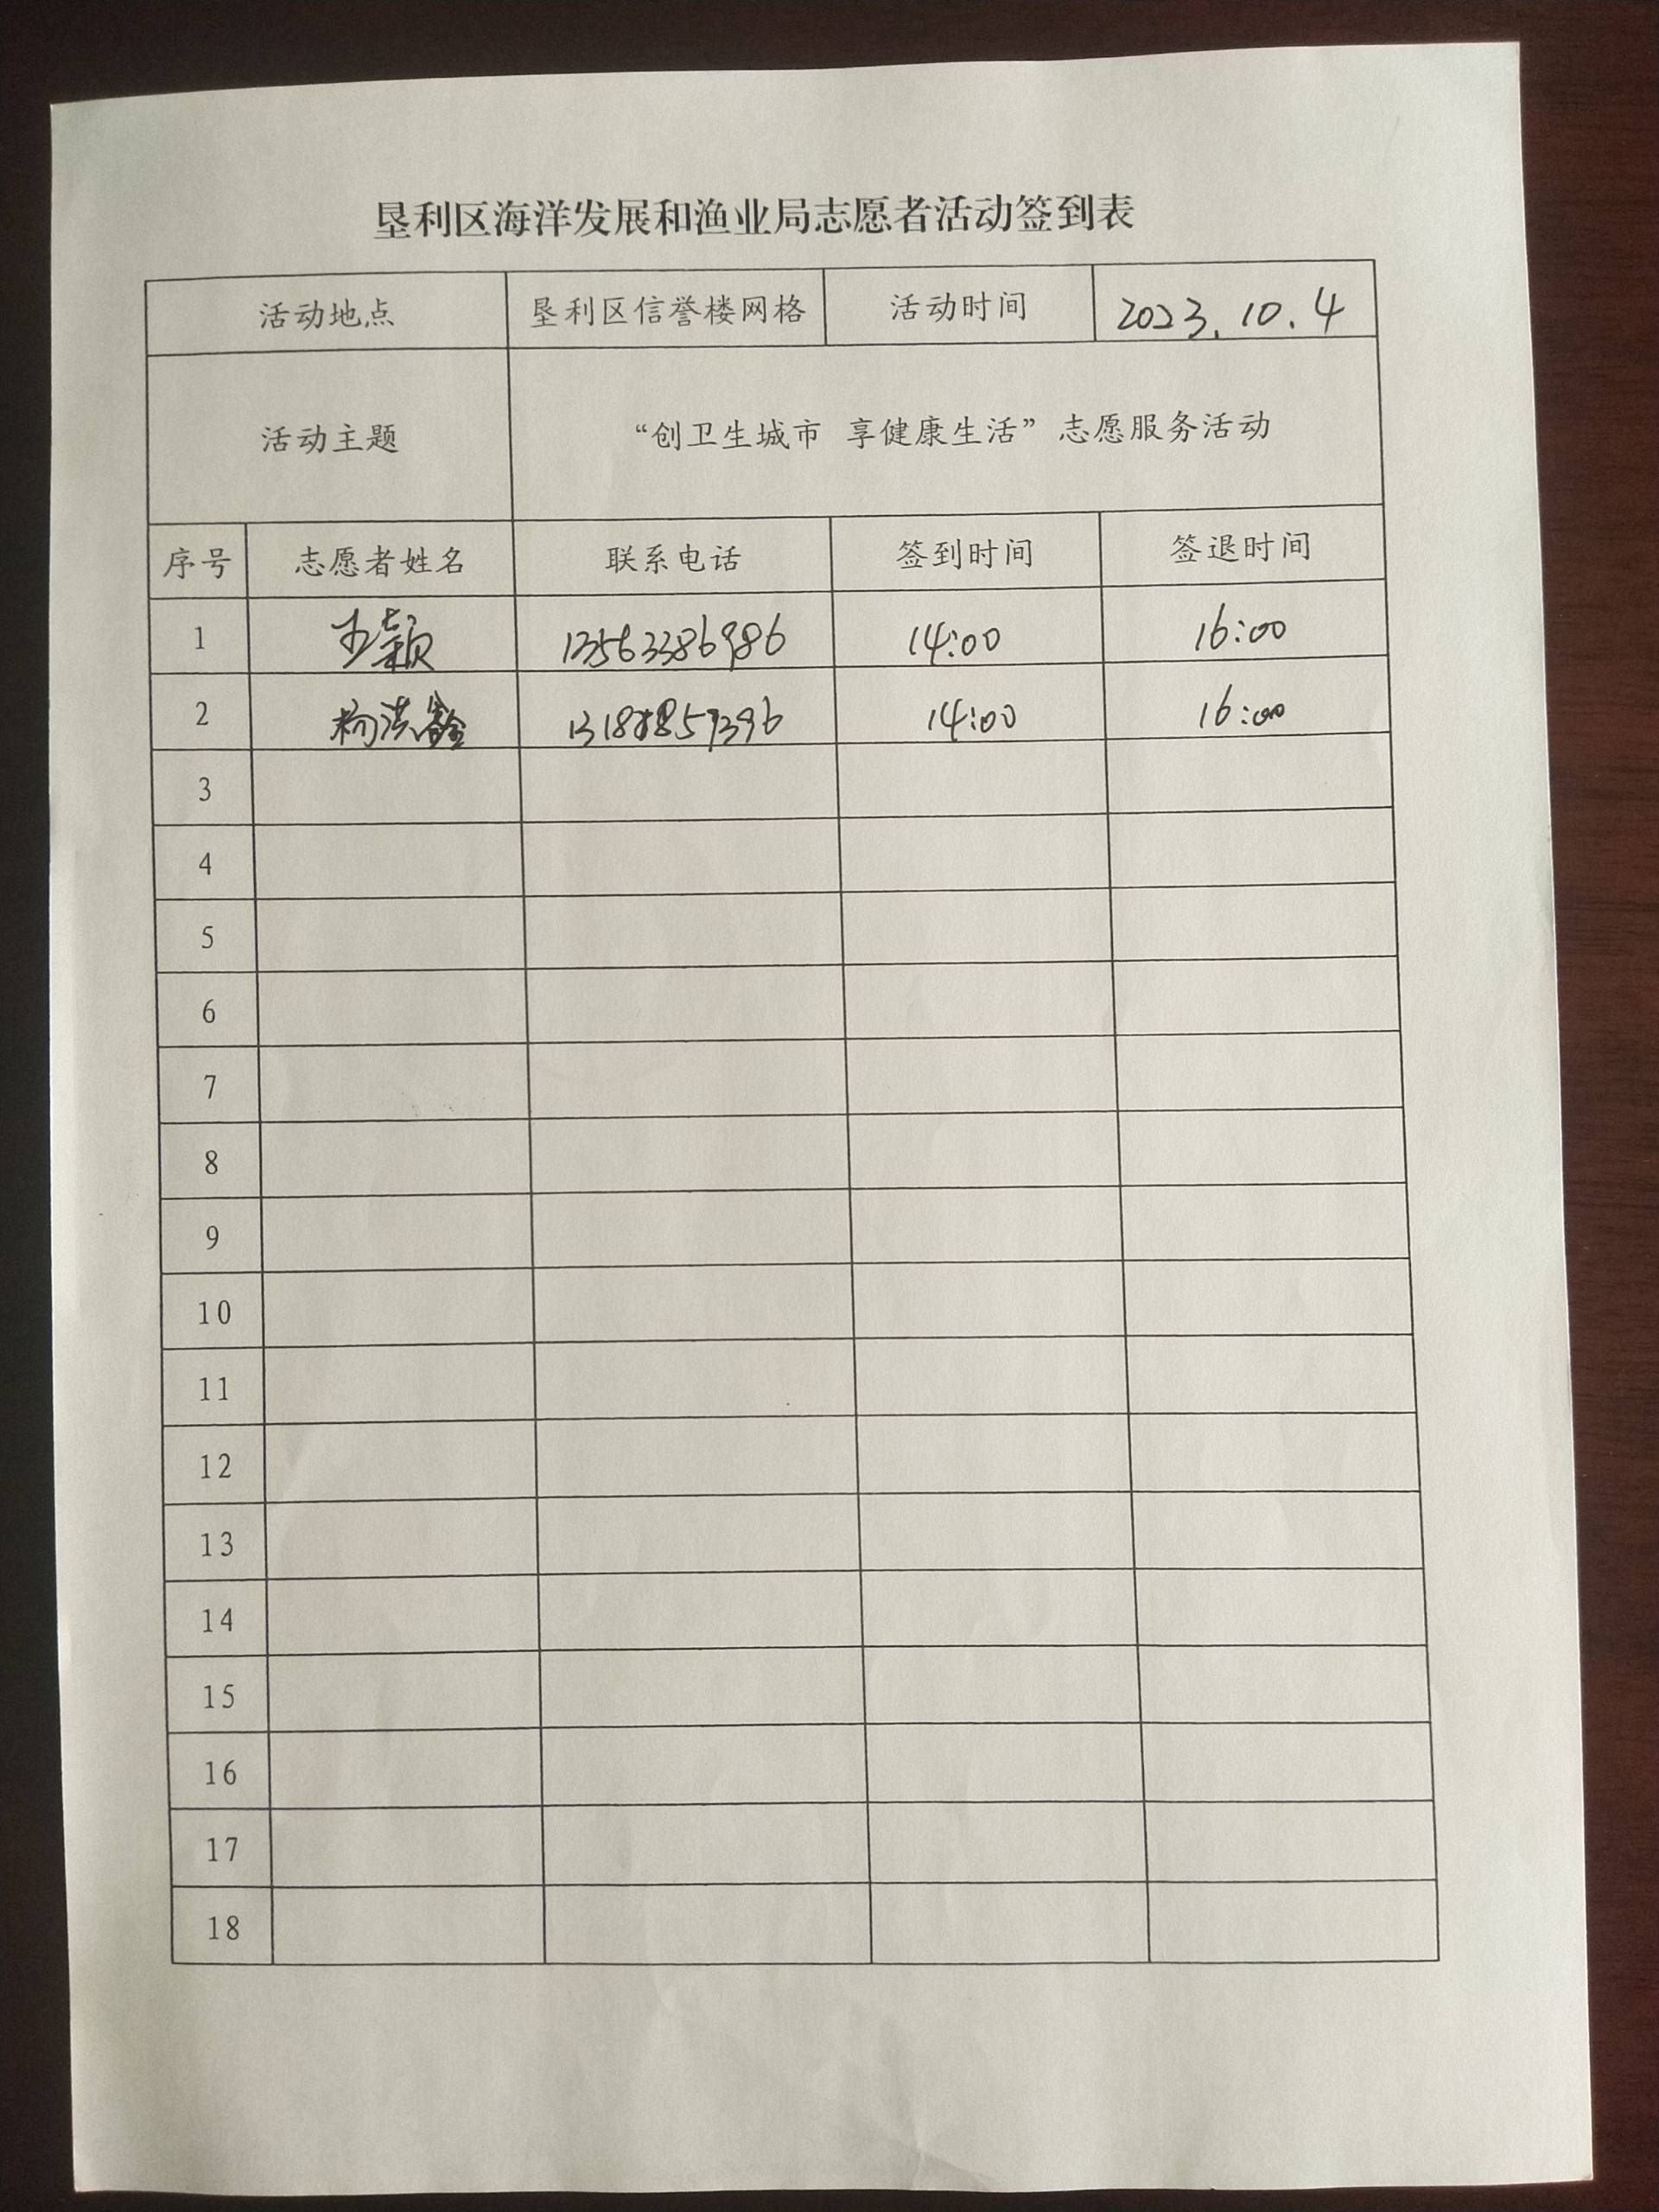 垦利区海洋发展和渔业局志愿者活动签到表
活动地点 垦利区信誉楼网格 活动时间 2023.10.4
活动主题 “创卫生城市 享健康生活”志愿服务活动
序号 志愿者姓名 联系电话 签到时间 签退时间
1 王颖 13563386986 14:00 16:00
2 杨洪鑫 14:00 16:00
3
4
5
6
7
8
9
10
11
12
13
14
15
16
17
18